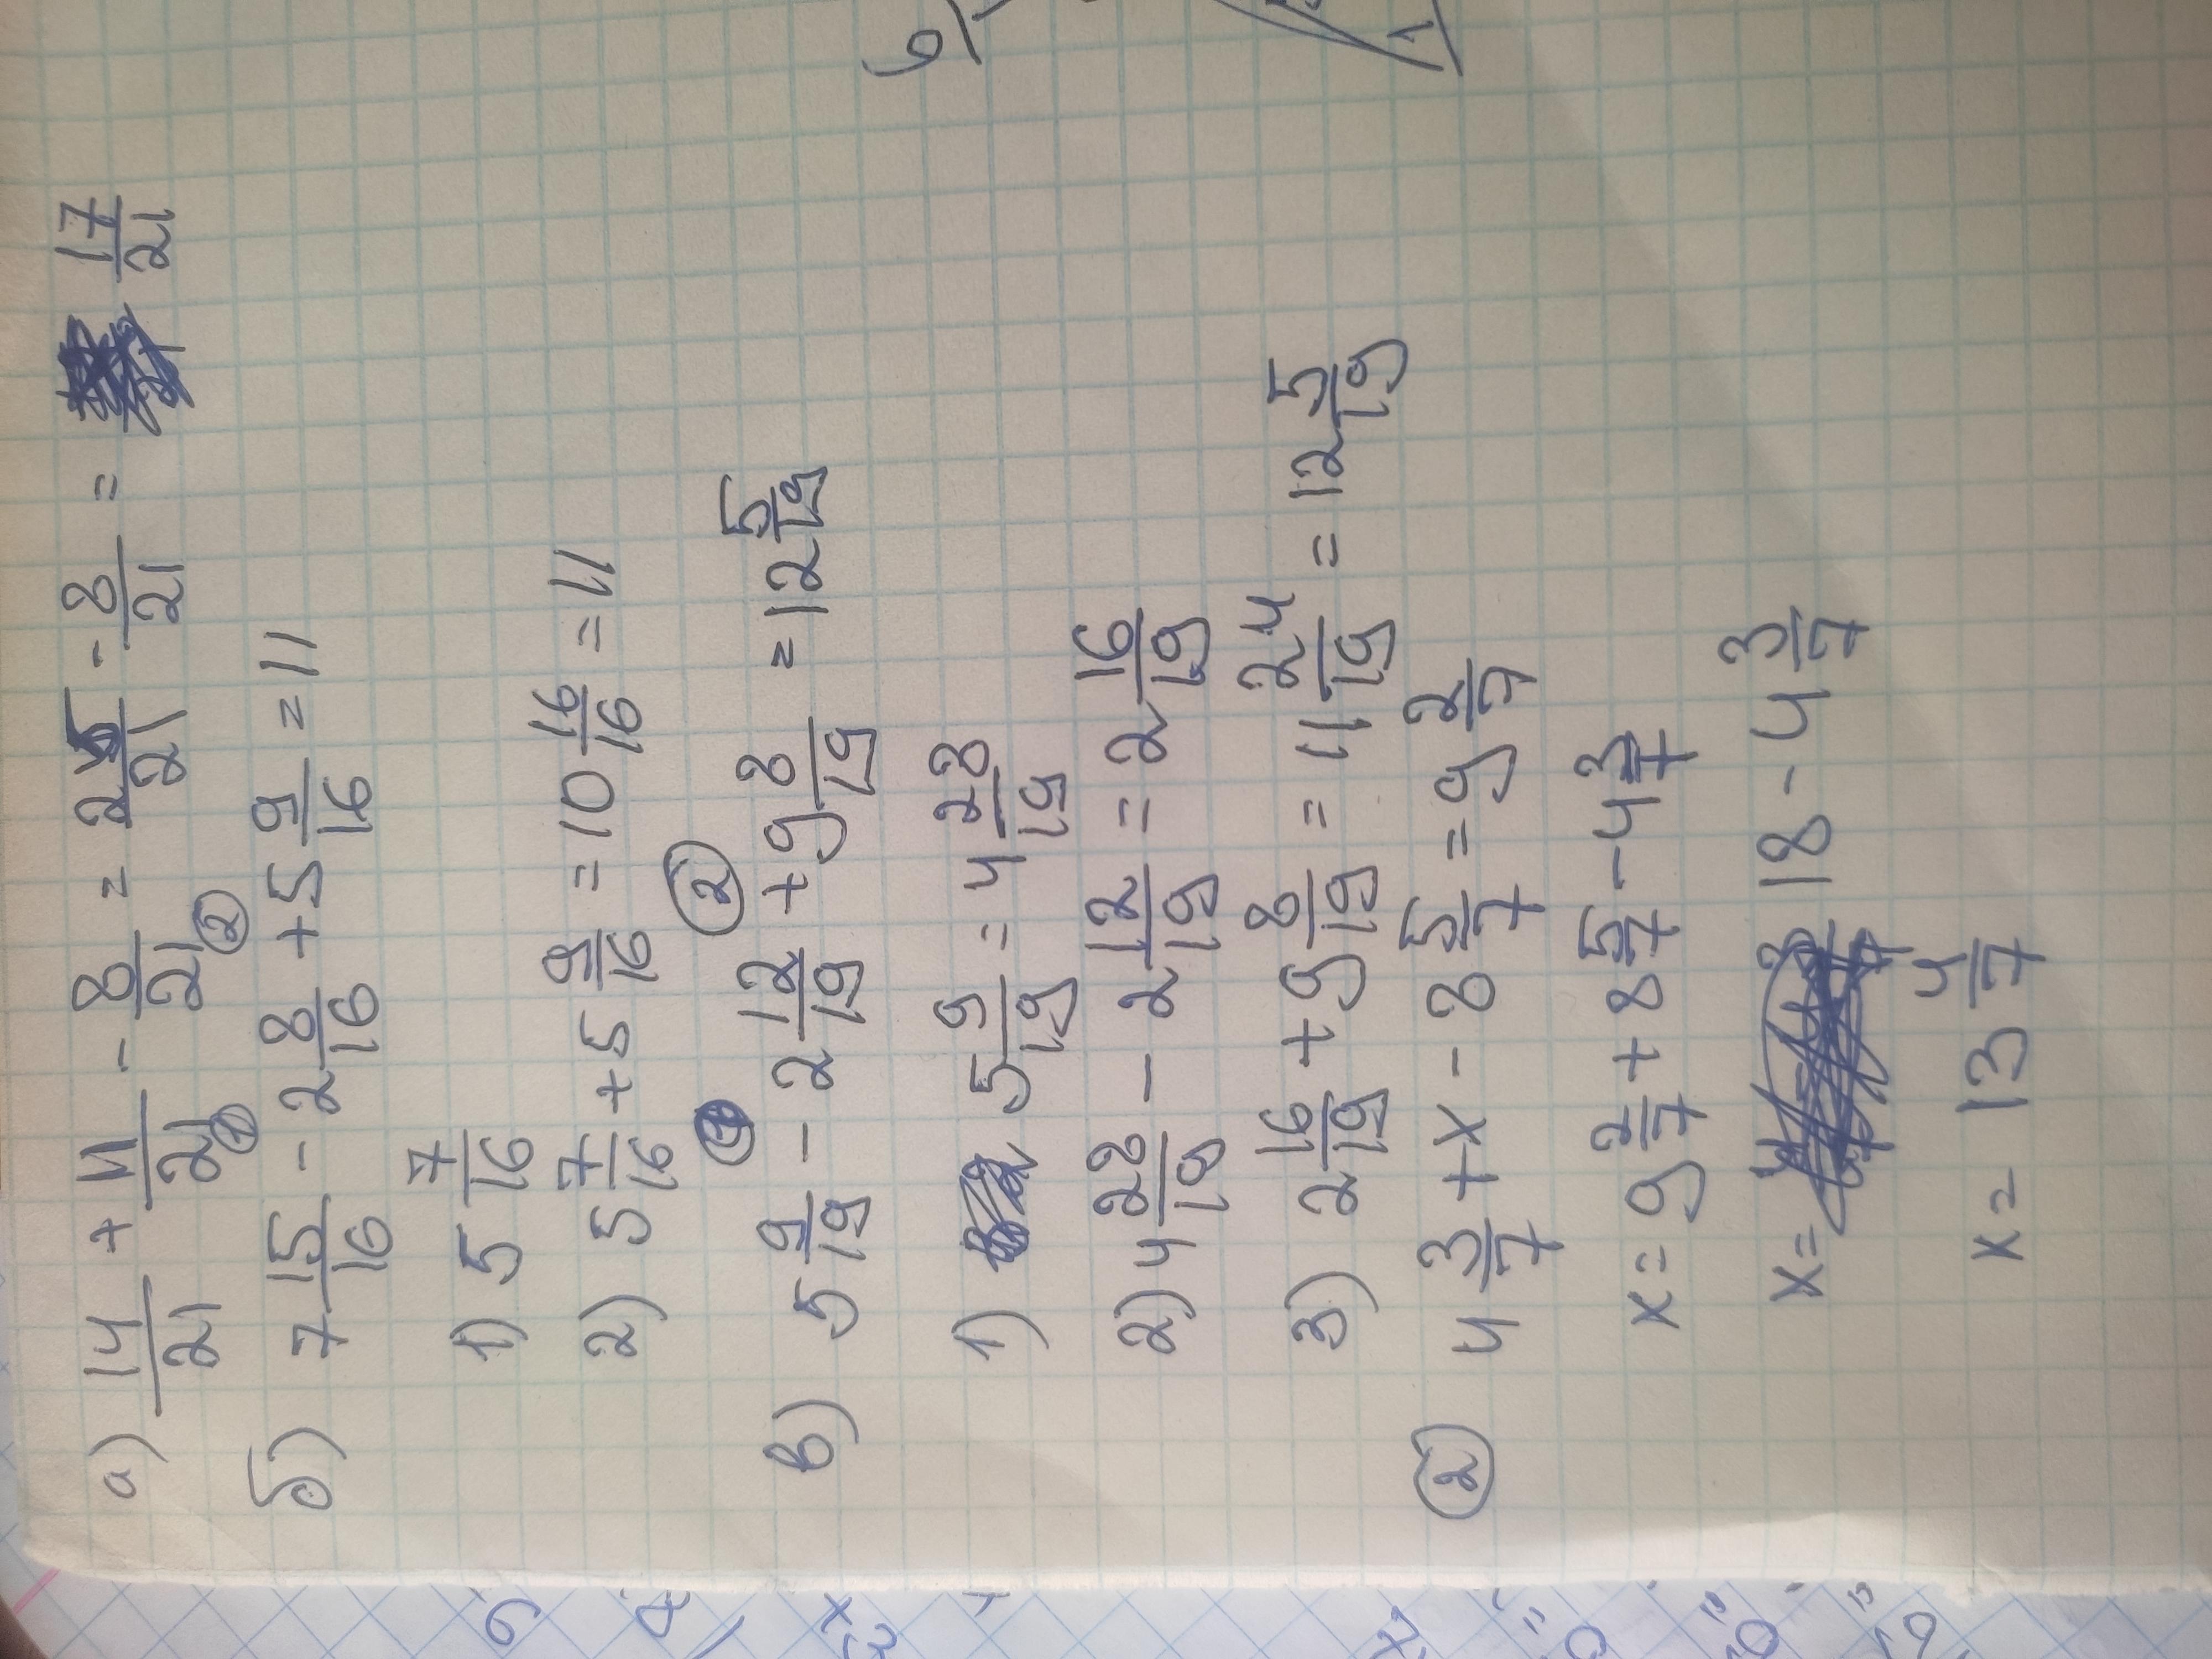 а) 14/21 + 11/21 - 8/21 = 25/21 - 8/21 = 17/21
① ②
б) 7 15/16 - 2 8/16 + 5 9/16 = 11
1) 5 7/16
2) 5 7/16 + 5 9/16 = 10 16/16 = 11
②
в) 5 9/19 - 2 12/19 + 9 8/19 = 12 5/19
1) 5 9/19 = 4 28/19
2) 4 28/19 - 2 12/19 = 2 16/19
3) 2 16/19 + 9 8/19 = 11 24/19 = 12 5/19
② 4 3/7 + x - 8 5/7 = 9 2/7
x = 9 2/7 + 8 5/7 - 4 3/7
x = 18 - 4 3/7
x = 13 4/7